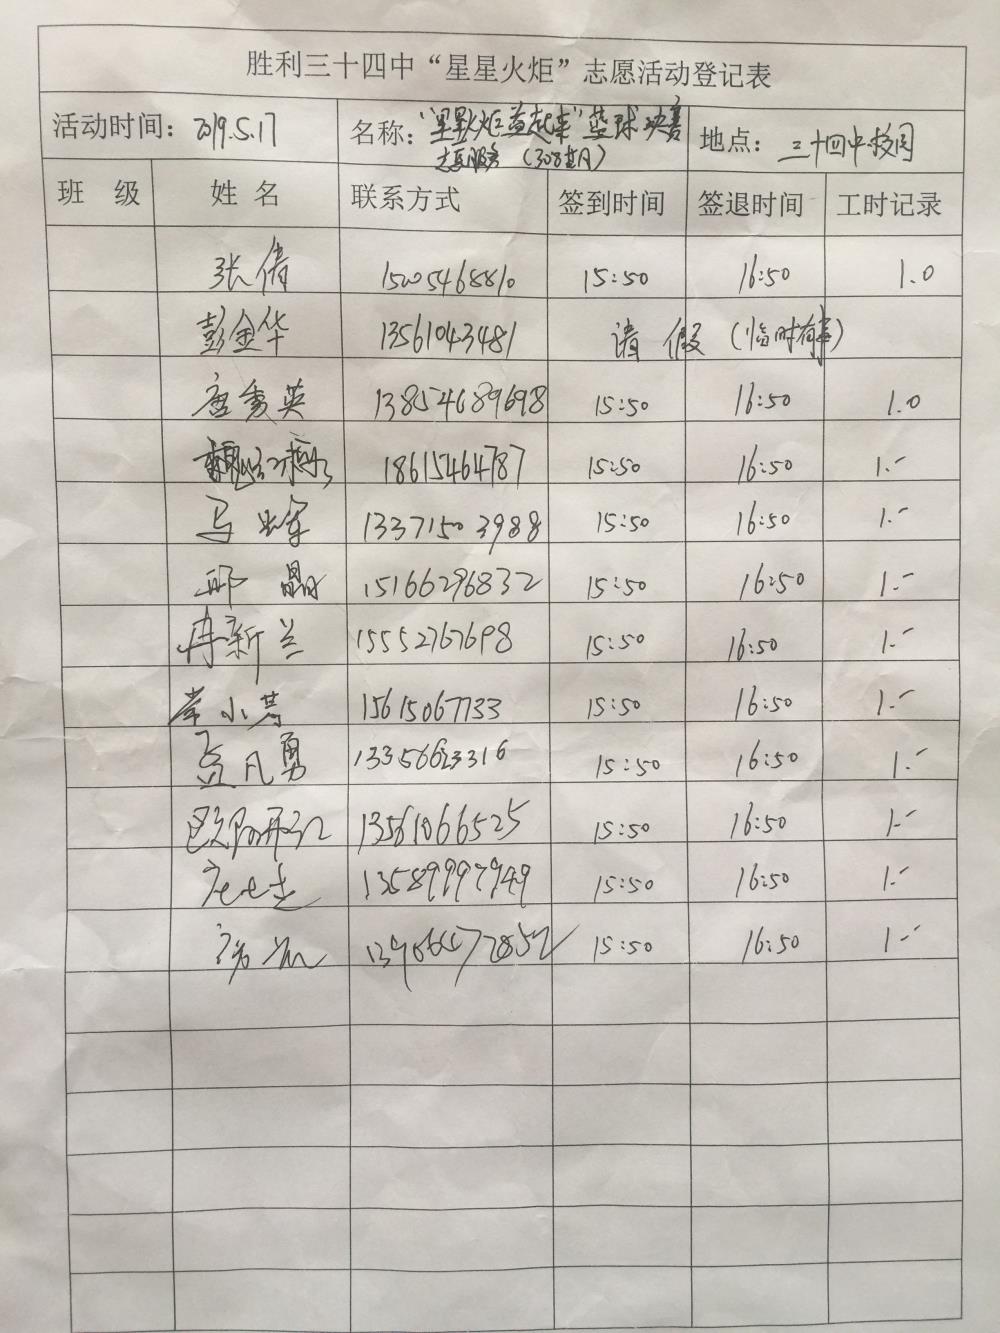 胜利三十四中“星星火炬”志愿活动登记表
活动时间：2019.5.17 名称：“星星火炬益起来”篮球决赛 地点：三十四中校园
志愿服务（308期）
班 级 姓 名 联系方式 签到时间 签退时间 工时记录
张倩 15:50 16:50 1.0
彭金华 13561043481 请 假（临时有事）
唐秀英 13854689698 15:50 16:50 1.0
18615464787 15:50 16:50 1.-
马 13371503988 15:50 16:50 1.-
邢 晶 15166296832 15:50 16:50 1.-
冉新兰 15552767698 15:50 16:50 1.-
常小芳 15615067733 15:50 16:50 1.-
孟凡勇 13356623316 15:50 16:50 1.-
欧阳开红 13561066525 15:50 16:50 1.-
13589997949 15:50 16:50 1.-
15:50 16:50 1.-